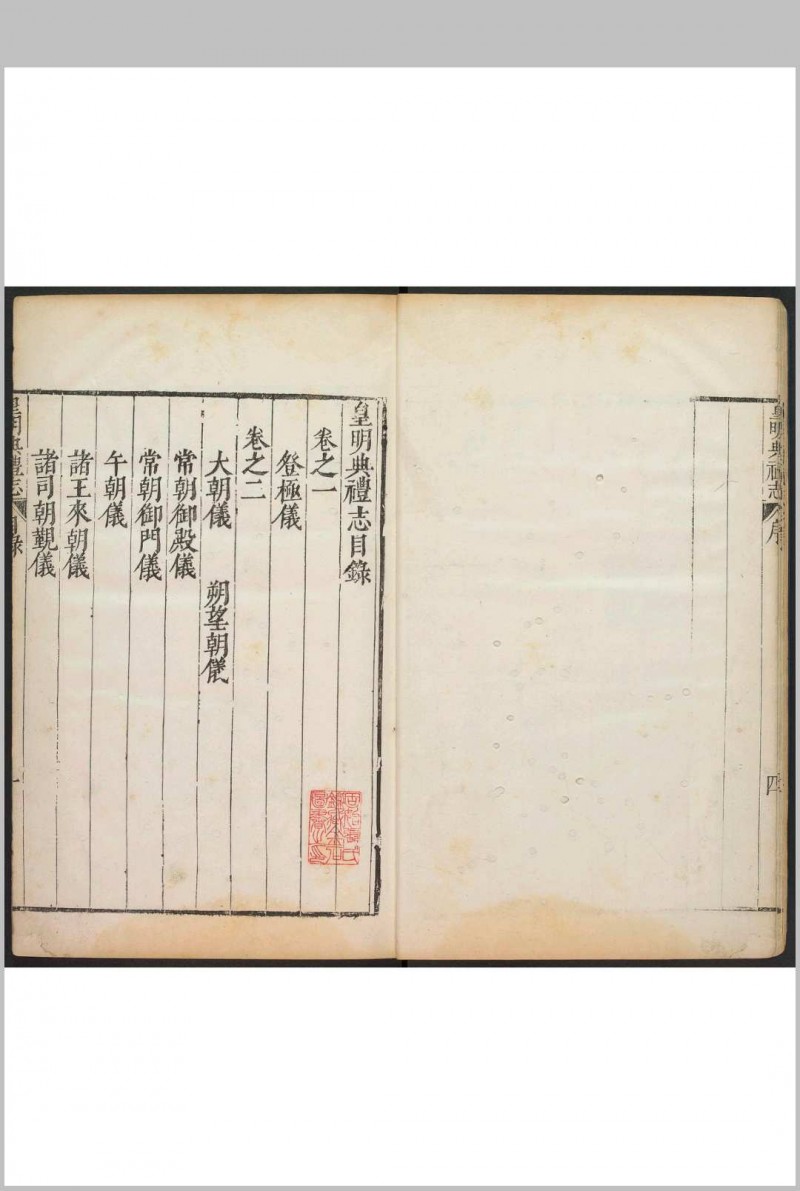 皇明典禮志
序
四
皇明典禮志目錄
卷之一
登極儀
卷之二
大朝儀　朔望朝儀
常朝御殿儀
常朝御門儀
午朝儀
諸王來朝儀
諸司朝覲儀
皇明典禮志
目錄
一